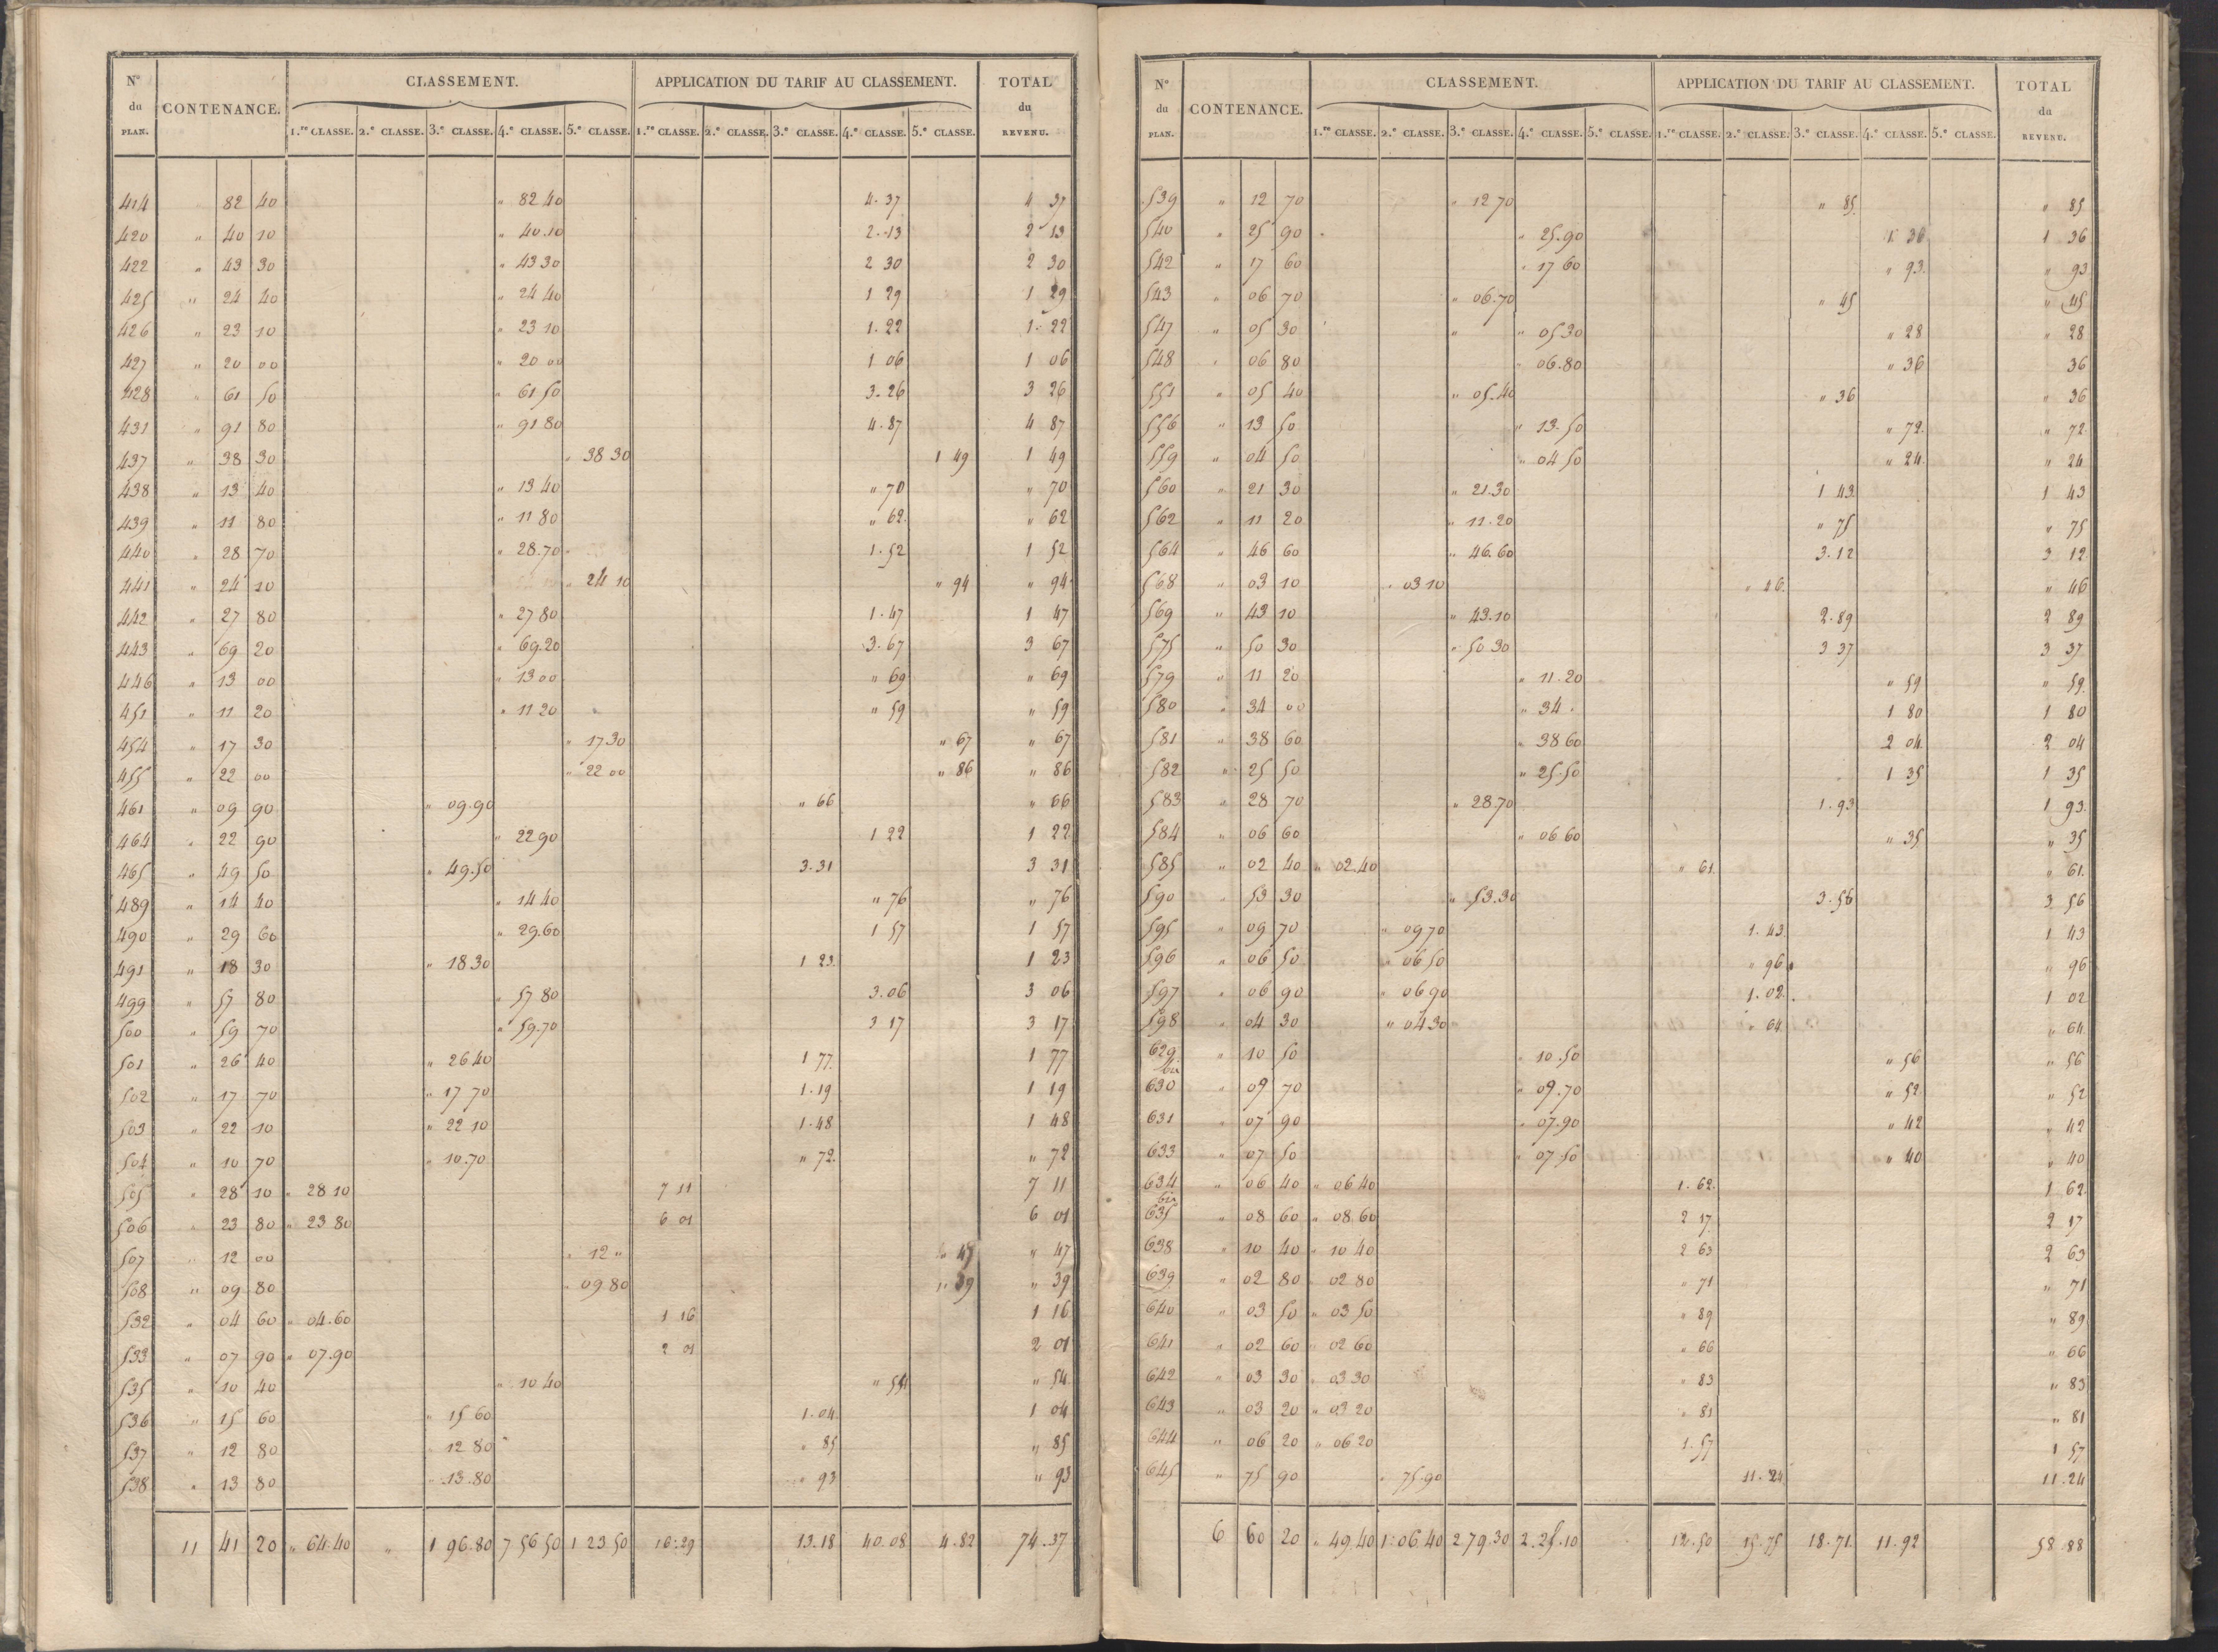 N° du PLAN. CONTENANCE. CLASSEMENT. APPLICATION DU TARIF AU CLASSEMENT. TOTAL du REVENU.
1.re CLASSE. 2.e CLASSE. 3.e CLASSE. 4.e CLASSE. 5.e CLASSE. 1.re CLASSE. 2.e CLASSE. 3.e CLASSE. 4.e CLASSE. 5.e CLASSE.
414 82 40 " 82 40 4. 37 4 37
420 " 40 10 " 40.10 2. 13 2 13
422 " 43 30 " 43 30 2 30 2 30
425 " 24 40 " 24 40 1 29 1 29
426 " 23 10 " 23 10 1. 22 1. 22
427 " 20 00 " 20 00 1 06 1 06
428 " 61 50 " 61 50 3. 26 3 26
431 " 91 80 " 91 80 4. 87 4 87
437 " 38 30 " 38 30 1 49 1 49
438 " 13 40 " 13 40 " 70 " 70
439 " 11 80 " 11 80 " 62 " 62
440 " 28 70 " 28.70 1. 52 1 52
441 " 24 10 " 24 10 " 94 " 94
442 " 27 80 " 27 80 1. 47 1 47
443 " 69 20 " 69.20 3. 67 3 67
446 " 13 00 " 13 00 " 69 " 69
451 " 11 20 " 11 20 " 59 " 59
454 " 17 30 " 17 30 " 67 " 67
455 " 22 00 " 22 00 " 86 " 86
461 " 09 90 " 09.90 " 66 " 66
464 " 22 90 " 22 90 1 22 1 22
465 " 49 50 " 49.50 3. 31 3 31
489 " 14 40 " 14 40 " 76 " 76
490 " 29 60 " 29.60 1 57 1 57
491 " 18 30 " 18 30 1 23 1 23
499 " 57 80 " 57 80 3. 06 3 06
500 " 59 70 " 59.70 3 17 3 17
501 " 26 40 " 26 40 1 77 1 77
502 " 17 70 " 17 70 1. 19 1 19
503 " 22 10 " 22 10 1. 48 1 48
504 " 10 70 " 10.70 " 72 " 72
505 " 28 10 " 28 10 7 11 7 11
506 " 23 80 " 23 80 6 01 6 01
507 " 12 00 " 12 " " 47 " 47
508 " 09 80 " 09.80 " 39 " 39
532 " 04 60 " 04.60 1 16 1 16
533 " 07 90 " 07.90 2 01 2 01
535 " 10 40 " 10 40 " 54 " 54
536 " 15 60 " 15 60 1. 04 1 04
537 " 12 80 12 80 " 85 " 85
538 " 13 80 " 13.80 " 93 " 93
11 41 20 " 64.40 " 1 96.80 7 56 50 1 23.50 16.29 13.18 40.08 4.82 74.37
N° du PLAN. CONTENANCE. CLASSEMENT. APPLICATION DU TARIF AU CLASSEMENT. TOTAL du REVENU.
1.re CLASSE. 2.e CLASSE. 3.e CLASSE. 4.e CLASSE. 5.e CLASSE. 1.re CLASSE. 2.e CLASSE. 3.e CLASSE. 4.e CLASSE. 5.e CLASSE.
539 " 12 70 " 12 70 " 85 " 85
540 " 25 90 " 25.90 1 36 1 36
542 " 17 60 " 17 60 " 93 " 93
543 " 06 70 " 06.70 " 45 " 45
547 " 05 30 " " 05.30 " 28 " 28
548 " 06 80 " 06.80 " 36 36
551 " 05 40 " 05.40 " 36 " 36
556 " 13 50 " 13.50 " 72 " 72
559 " 04 50 " 04 50 " 24 " 24
560 " 21 30 " 21.30 1 43 1 43
562 " 11 20 " 11.20 " 75 " 75
564 " 46 60 " 46.60 3. 12 3 12
568 " 03 10 " 03 10 " 46 " 46
569 " 43 10 " 43.10 2. 89 2 89
575 " 50 30 " 50 30 3 37 3 37
579 " 11 20 " 11.20 " 59 " 59
580 " 34 00 " 34 . 1 80 1 80
581 " 38 60 " 38 60 2 04 2 04
582 " 25 50 " 25.50 1 35 1 35
583 " 28 70 " 28.70 1. 93 1 93
584 " 06 60 " 06 60 " 35 " 35
585 " 02 40 " 02.40 " 61 " 61
590 " 53 30 " 53.30 3. 56 3 56
595 " 09 70 " 09 70 1. 43 1 43
596 " 06 50 " 06 50 " 96 " 96
597 " 06 90 " 06 90 1. 02 1 02
598 " 04 30 " 04 30 " 64 " 64
629 bis " 10 50 " 10.50 " 56 " 56
630 " 09 70 " 09.70 " 52 " 52
631 " 07 90 " 07.90 " 42 " 42
633 " 07 50 " 07.50 " 40 " 40
634 bis " 06 40 " 06 40 1. 62 1 62
635 " 08 60 " 08.60 2 17 2 17
638 " 10 40 " 10 40 2 63 2 63
639 " 02 80 " 02 80 " 71 " 71
640 " 03 50 " 03 50 " 89 " 89
641 " 02 60 " 02 60 " 66 " 66
642 " 03 30 " 03 30 " 83 " 83
643 " 03 20 " 03 20 " 81 " 81
644 " 06 20 " 06 20 1. 57 1 57
645 " 75 90 " 75.90 11. 24 11. 24
6 60 20 " 49.40 1. 06.40 2 79.30 2. 25.10 12.50 15.75 18.71 11.92 58.88